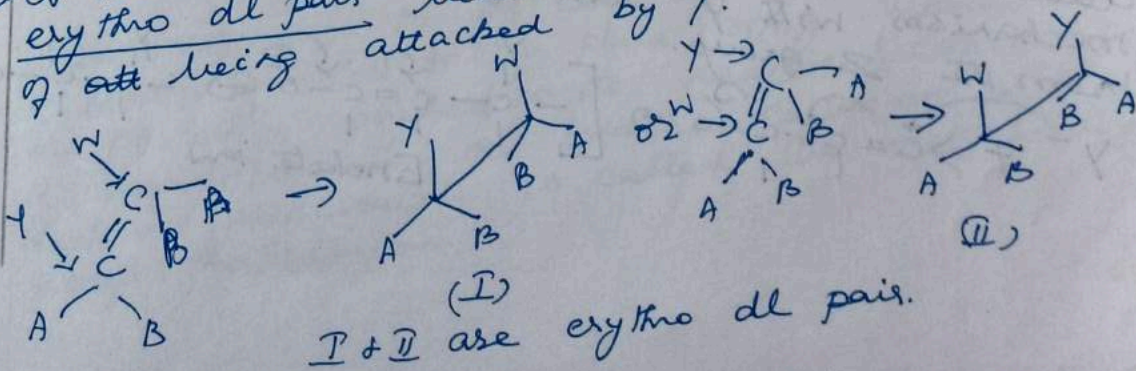 erythro dl pair
of being attacked by Y.
W
Y
C
A
B
C
A
B
→
W
Y
A
B
A
B
(I)
or
Y → C
A
B
W → C
A
B
→
Y
W
A
B
A
B
(II)
I & II are erythro dl pair.